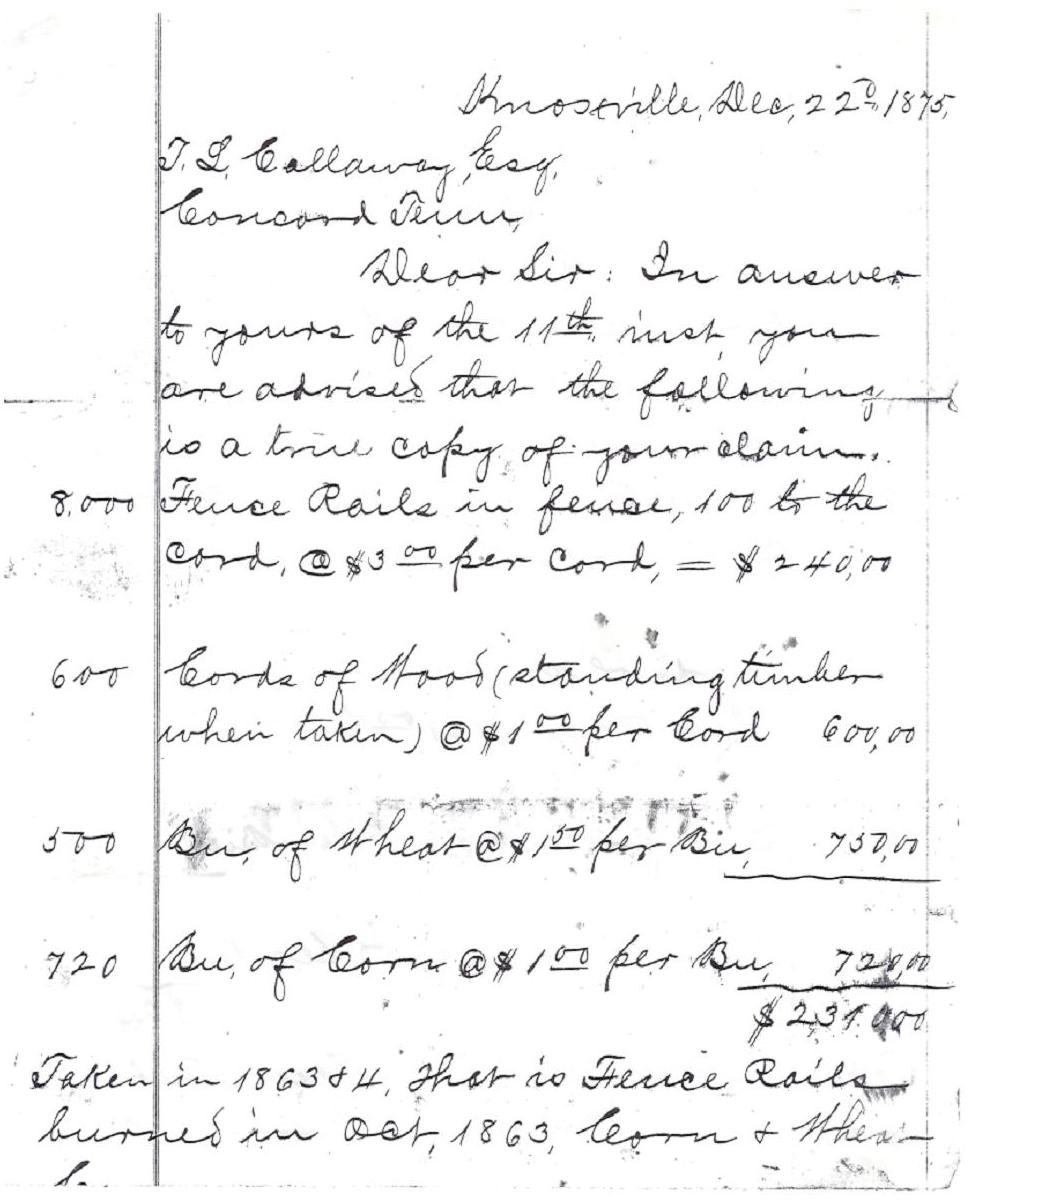 Knoxville, Dec, 22D 1875,
T. L. Callaway, Esq,
Concord Tenn,
Dear Sir: In answer
to yours of the 11th. inst, you
are advised that the following
is a true copy of your claim.
8.000 Fence Rails in fence, 100 to the
cord, @ $3 00 per cord, = $240,00
600 Cords of Wood (standing timber
when taken) @ $1 00 per Cord 600,00
500 Bu, of Wheat @ $1 50 per Bu, 750,00
720 Bu, of Corn @ $1 00 per Bu, 720,00
$2310,00
Taken in 1863 & 4, that is Fence Rails
burned in Oct, 1863, Corn & Wheat